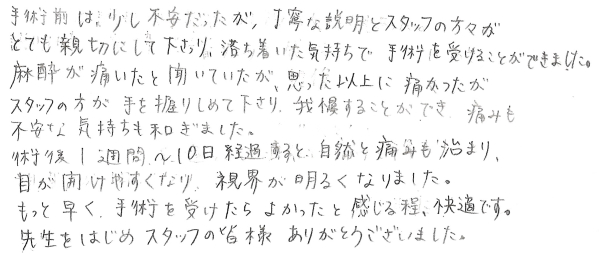 手術前は、少し不安だったが、丁寧な説明とスタッフの方々が
とても親切にして下さり、落ち着いた気持ちで手術を受けることができました。
麻酔が痛いと聞いていたが、思った以上に痛かったが
スタッフの方が手を握りしめて下さり、我慢することができ、痛みも
不安な気持ちも和ぎました。
術後1週間〜10日経過すると、自然と痛みも治まり、
目が開けやすくなり、視界が明るくなりました。
もっと早く、手術を受けたらよかったと感じる程、快適です。
先生をはじめスタッフの皆様ありがとうございました。